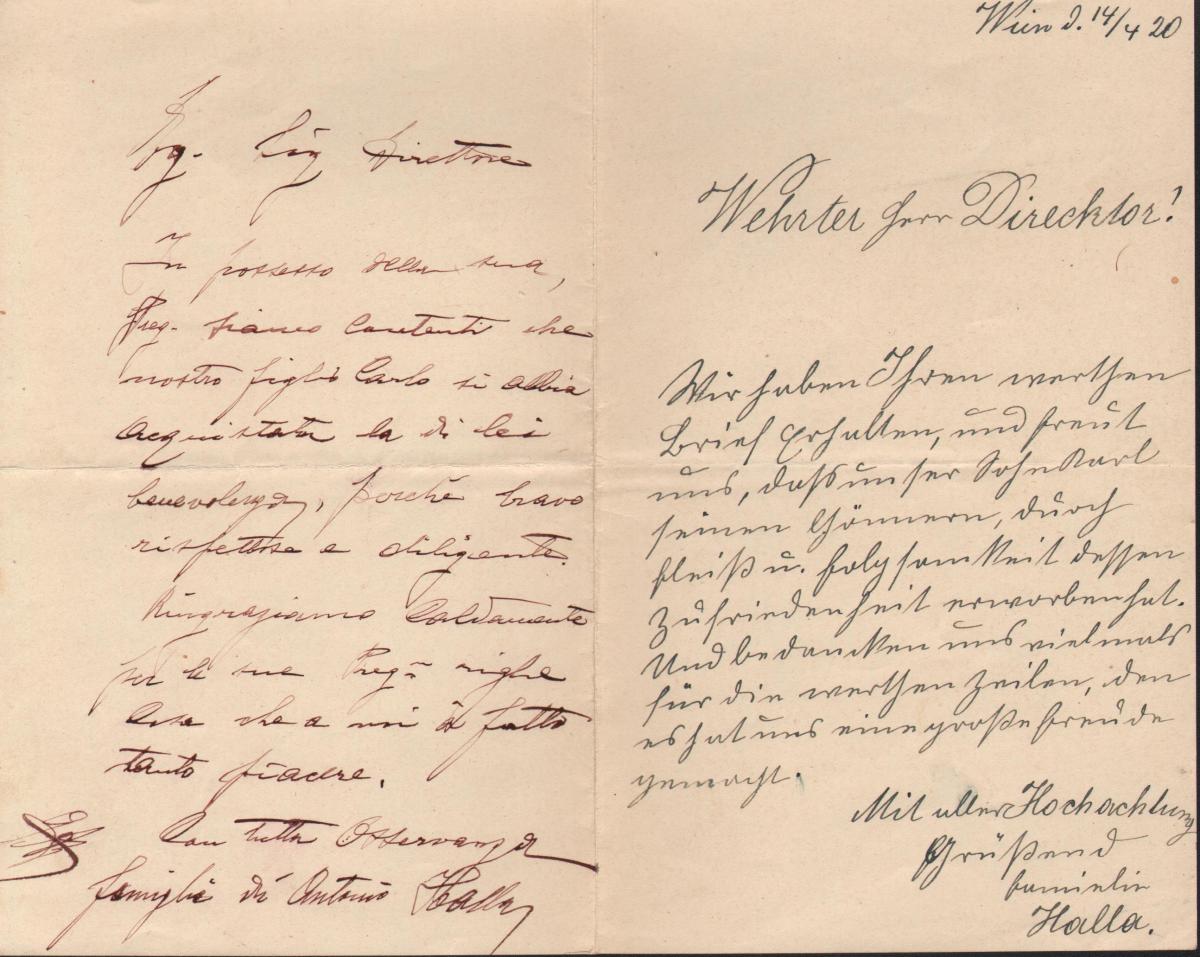 Pg. Sig Direttore
In possesso della sua,
Preg. siamo Contenti che
nostro figlio Carlo si abbia
acquistata la di lei
benevolenza, poichè bravo
rispettoso e diligente.
Ringraziamo Caldamente
per le sue Preg. righe
Cosa che a noi à fatto
tanto piacere.
Con tutta Osservanza
famiglia di Antonio Halla
Wien d. 14/4 20
Wehrter Herr Direcktor!
Wir haben Ihren werthen
Brief Erhalten, und freut
uns, daß unser Sohn Karl
seinen Gönnern, durch
Fleiß u. Folgsamkeit dessen
Zufriedenheit erworben hat.
Und bedancken uns vielmals
für die werthen Zeilen, den
es hat uns eine große Freude
gemacht.
Mit aller Hochachtung
Grüßend
Famielie
Halla.